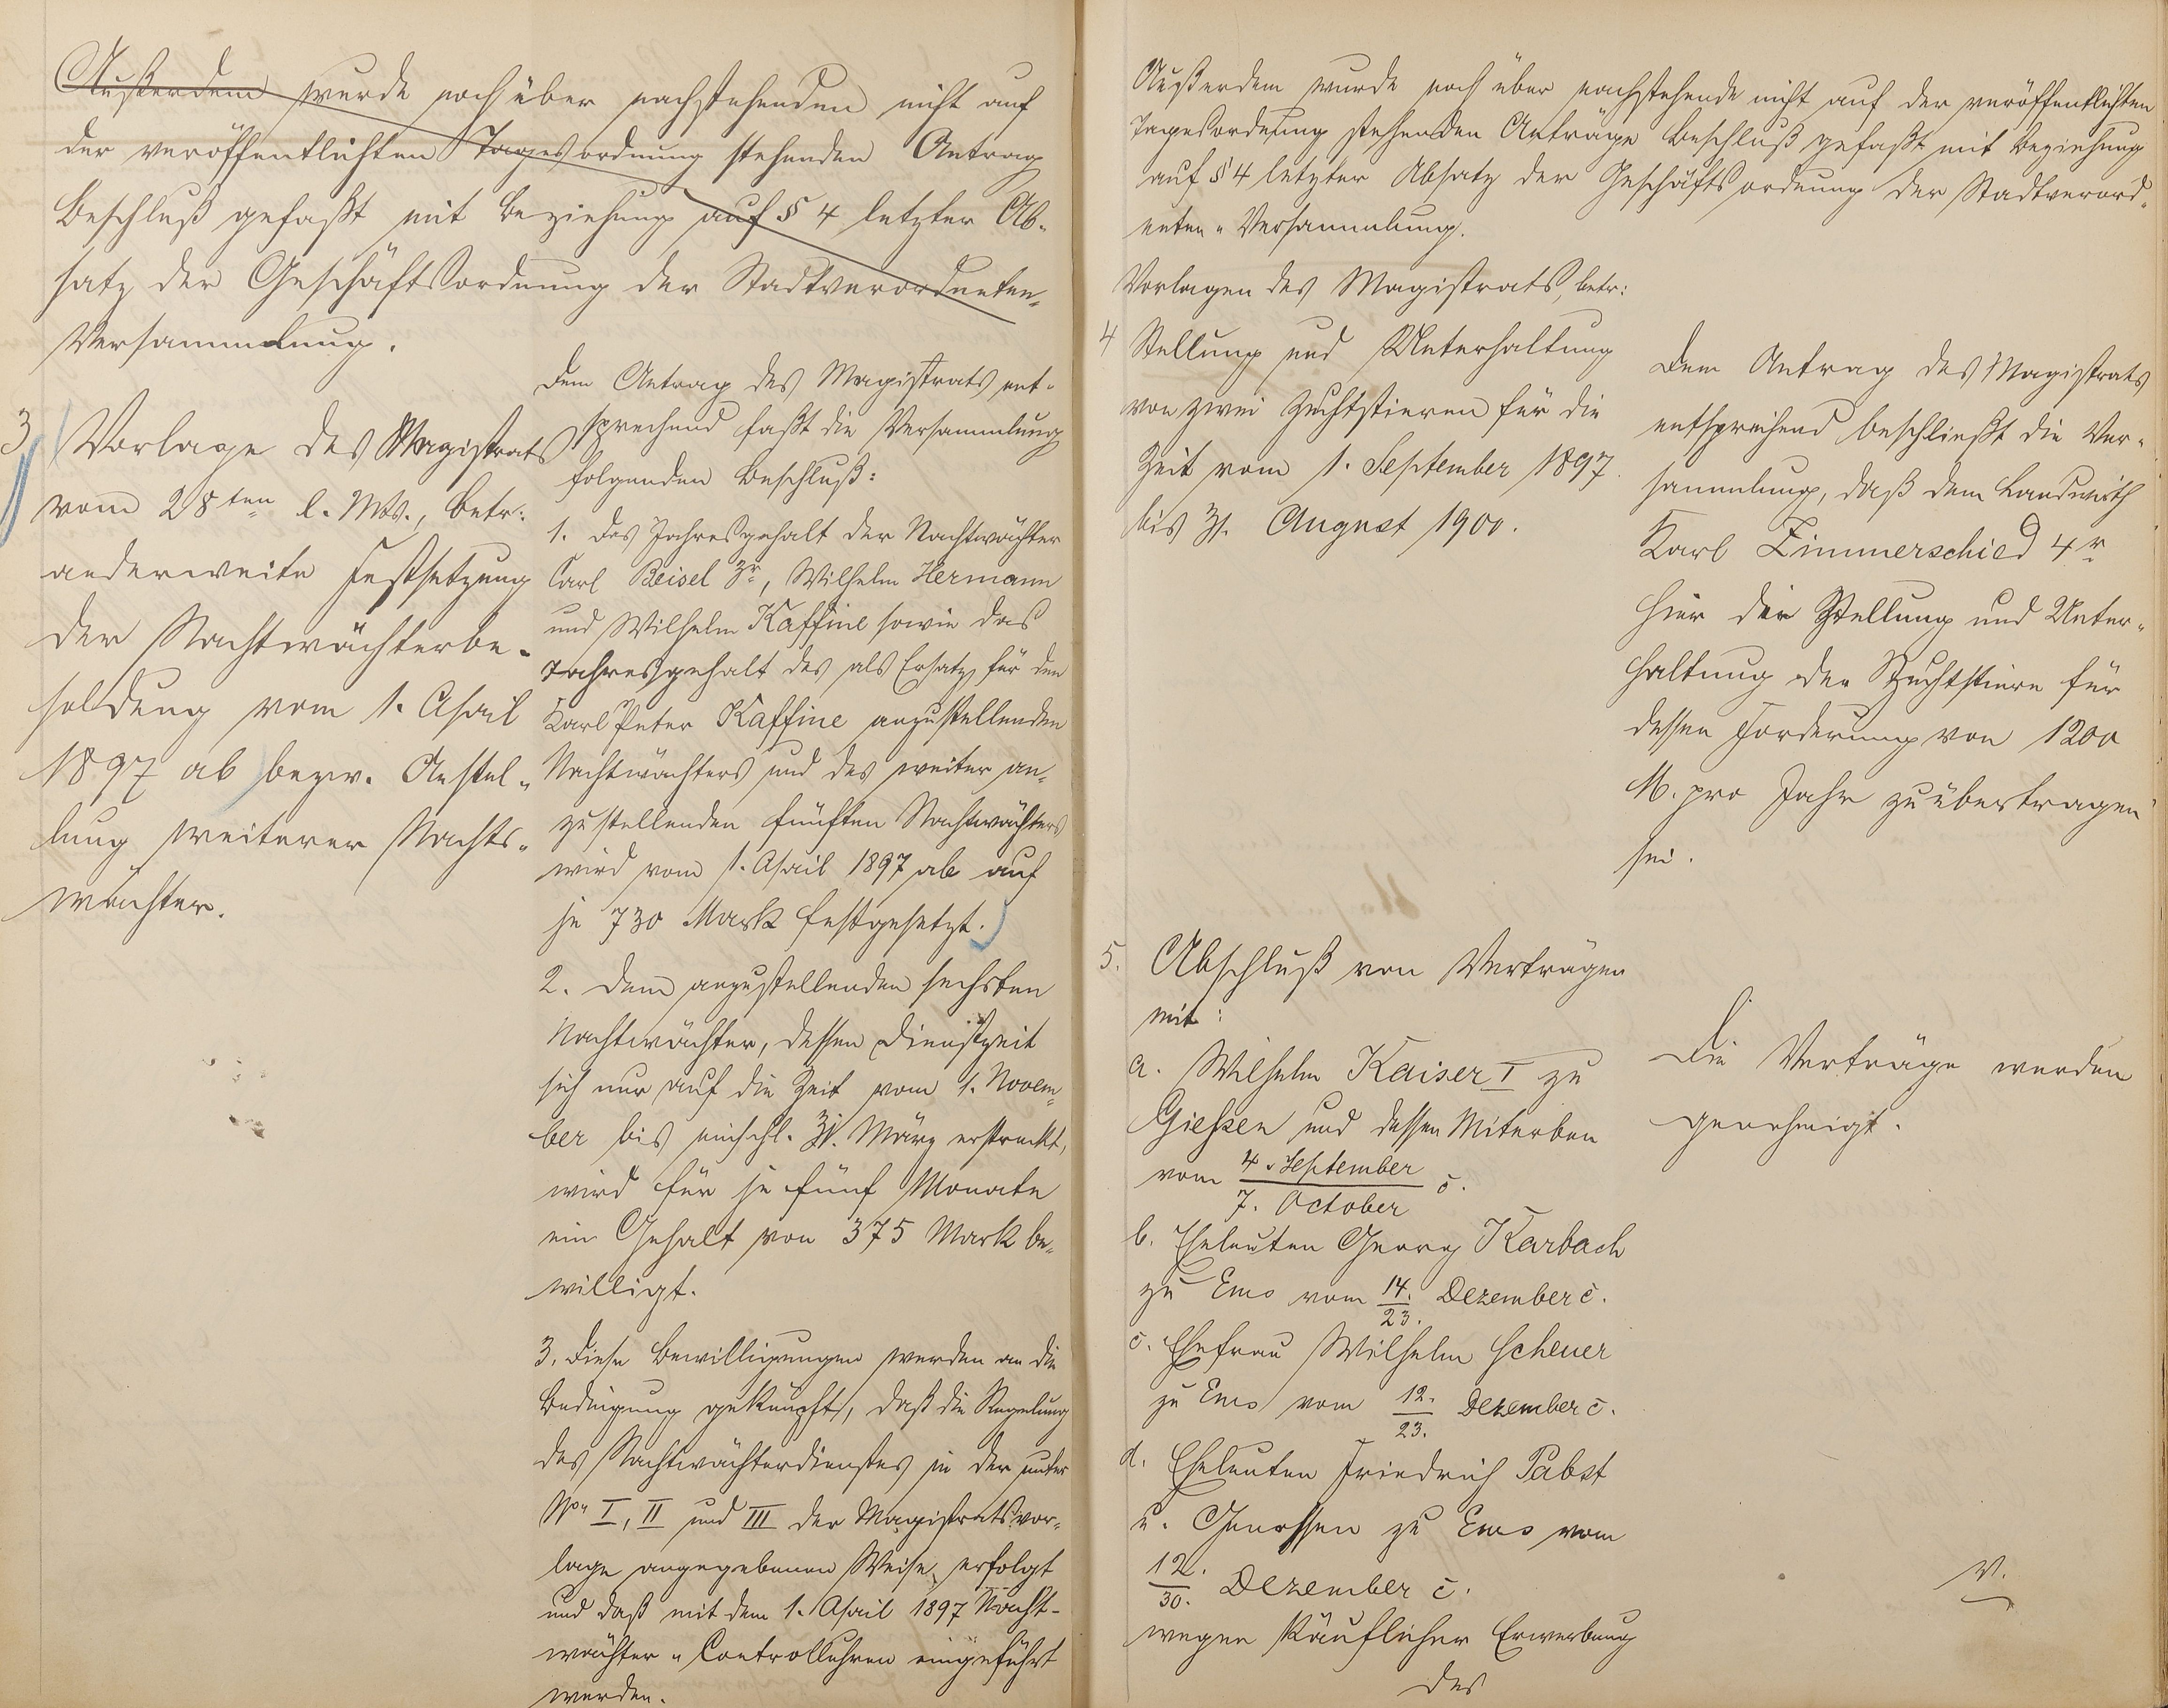 Außerdem wurde noch über nachstehenden nicht auf
der veröffentlichten Tagesordnung stehenden Antrag
Beschluß gefaßt mit Beziehung auf § 4 letzter Ab-
satz der Geschäftsordnung der Stadtverordneten-
Versammlung.
3 Vorlage des Magistrats
vom 28ten l. Mts., betr:
anderweite Festsetzung
der Nachtwächterbe-
soldung vom 1. April
1897 ab bezw. Anstel-
lung weiterer Nacht-
wächter.
Dem Antrag des Magistrats ent-
sprechend faßt die Versammlung
folgenden Beschluß:
1. Das Jahresgehalt der Nachtwächter
Carl Beisel 3r, Wilhelm Hermann
und Wilhelm Kaffine sowie das
Jahresgehalt des als Ersatz für den
Karl Peter Kaffine anzustellenden
Nachtwächters und des weiter an-
zustellenden fünften Nachtwächters
wird vom 1. April 1897 ab auf
je 730 Mark festgesetzt.
2. Dem anzustellenden sechsten
Nachtwächter, dessen Dienstzeit
sich nur auf die Zeit vom 1. Novem-
ber bis einschl. 31. März erstreckt,
wird für je fünf Monate
ein Gehalt von 375 Mark be-
willigt.
3. Diese Bewilligungen werden an die
Bedingung geknüpft, daß die Regelung
des Nachtwächterdienstes in der unter
No. I, II und III der Magistratsvor-
lage angegebenen Weise erfolgt
und daß mit dem 1. April 1897 Nacht-
wächter-Controlluhren eingeführt
werden.
Außerdem wurde noch über nachstehende nicht auf der veröffentlichten
Tagesordnung stehenden Anträge Beschluß gefaßt mit Beziehung
auf § 4 letzter Absatz der Geschäftsordnung der Stadtverord-
neten-Versammlung.
Vorlagen des Magistrats, betr:
4 Stellung und Unterhaltung
von zwei Zuchtstieren für die
Zeit vom 1. September 1897
bis 31. August 1900.
Dem Antrag des Magistrats
entsprechend beschließt die Ver-
sammlung, daß dem Landwirth
Karl Zimmerschied 4r
hier die Stellung und Unter-
haltung der Zuchtstiere für
dessen Forderung von 1200
M. pro Jahr zu übertragen
sei.
5. Abschluß von Verträgen
mit:
a. Wilhelm Kaiser I zu
Gießen und dessen Miterben
vom 4. September
7. October c.
b. Eheleuten Georg Karbach
zu Ems vom 14./23. Dezember c.
c. Ehefrau Wilhelm Scheuer
zu Ems vom 12./23. Dezember c.
d. Eheleuten Friedrich Pabst
u. Genossen zu Ems vom
12./30. Dezember c.
wegen käuflicher Erwerbung
des
Die Verträge werden
genehmigt.
V.